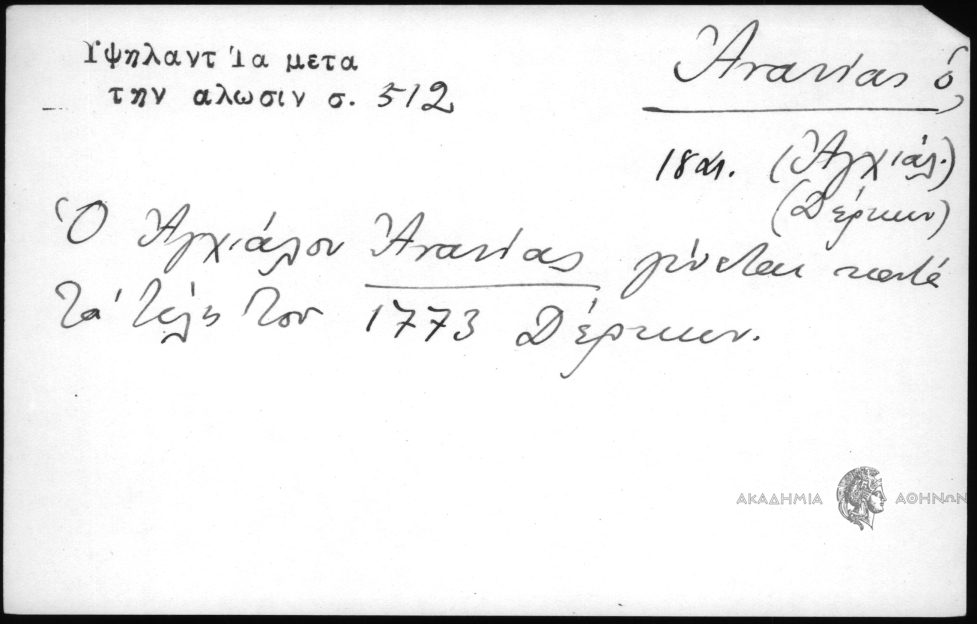 Ὑψηλαντ Ἱα μετα
την αλωσιν σ. 512
Ἀνανίας ὁ,
18 αι. (Ἀγχιάλ.)
(Δέρκων)
Ὁ Ἀγχιάλου Ἀνανίας γίνεται κατά
τά τέλη του 1773 Δέρκων.
ΑΚΑΔΗΜΙΑ ΑΘΗΝΩΝ